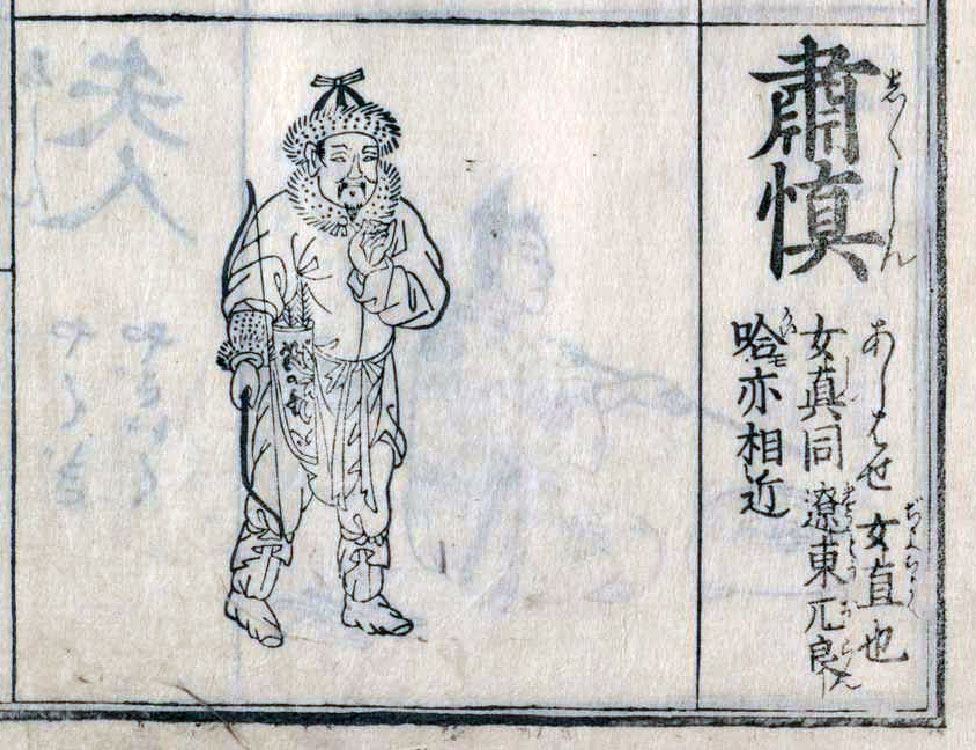 肅慎
しくしん
あしはせ 女直也
ぢよちよく
女真同 遼東兀良
哈亦相近